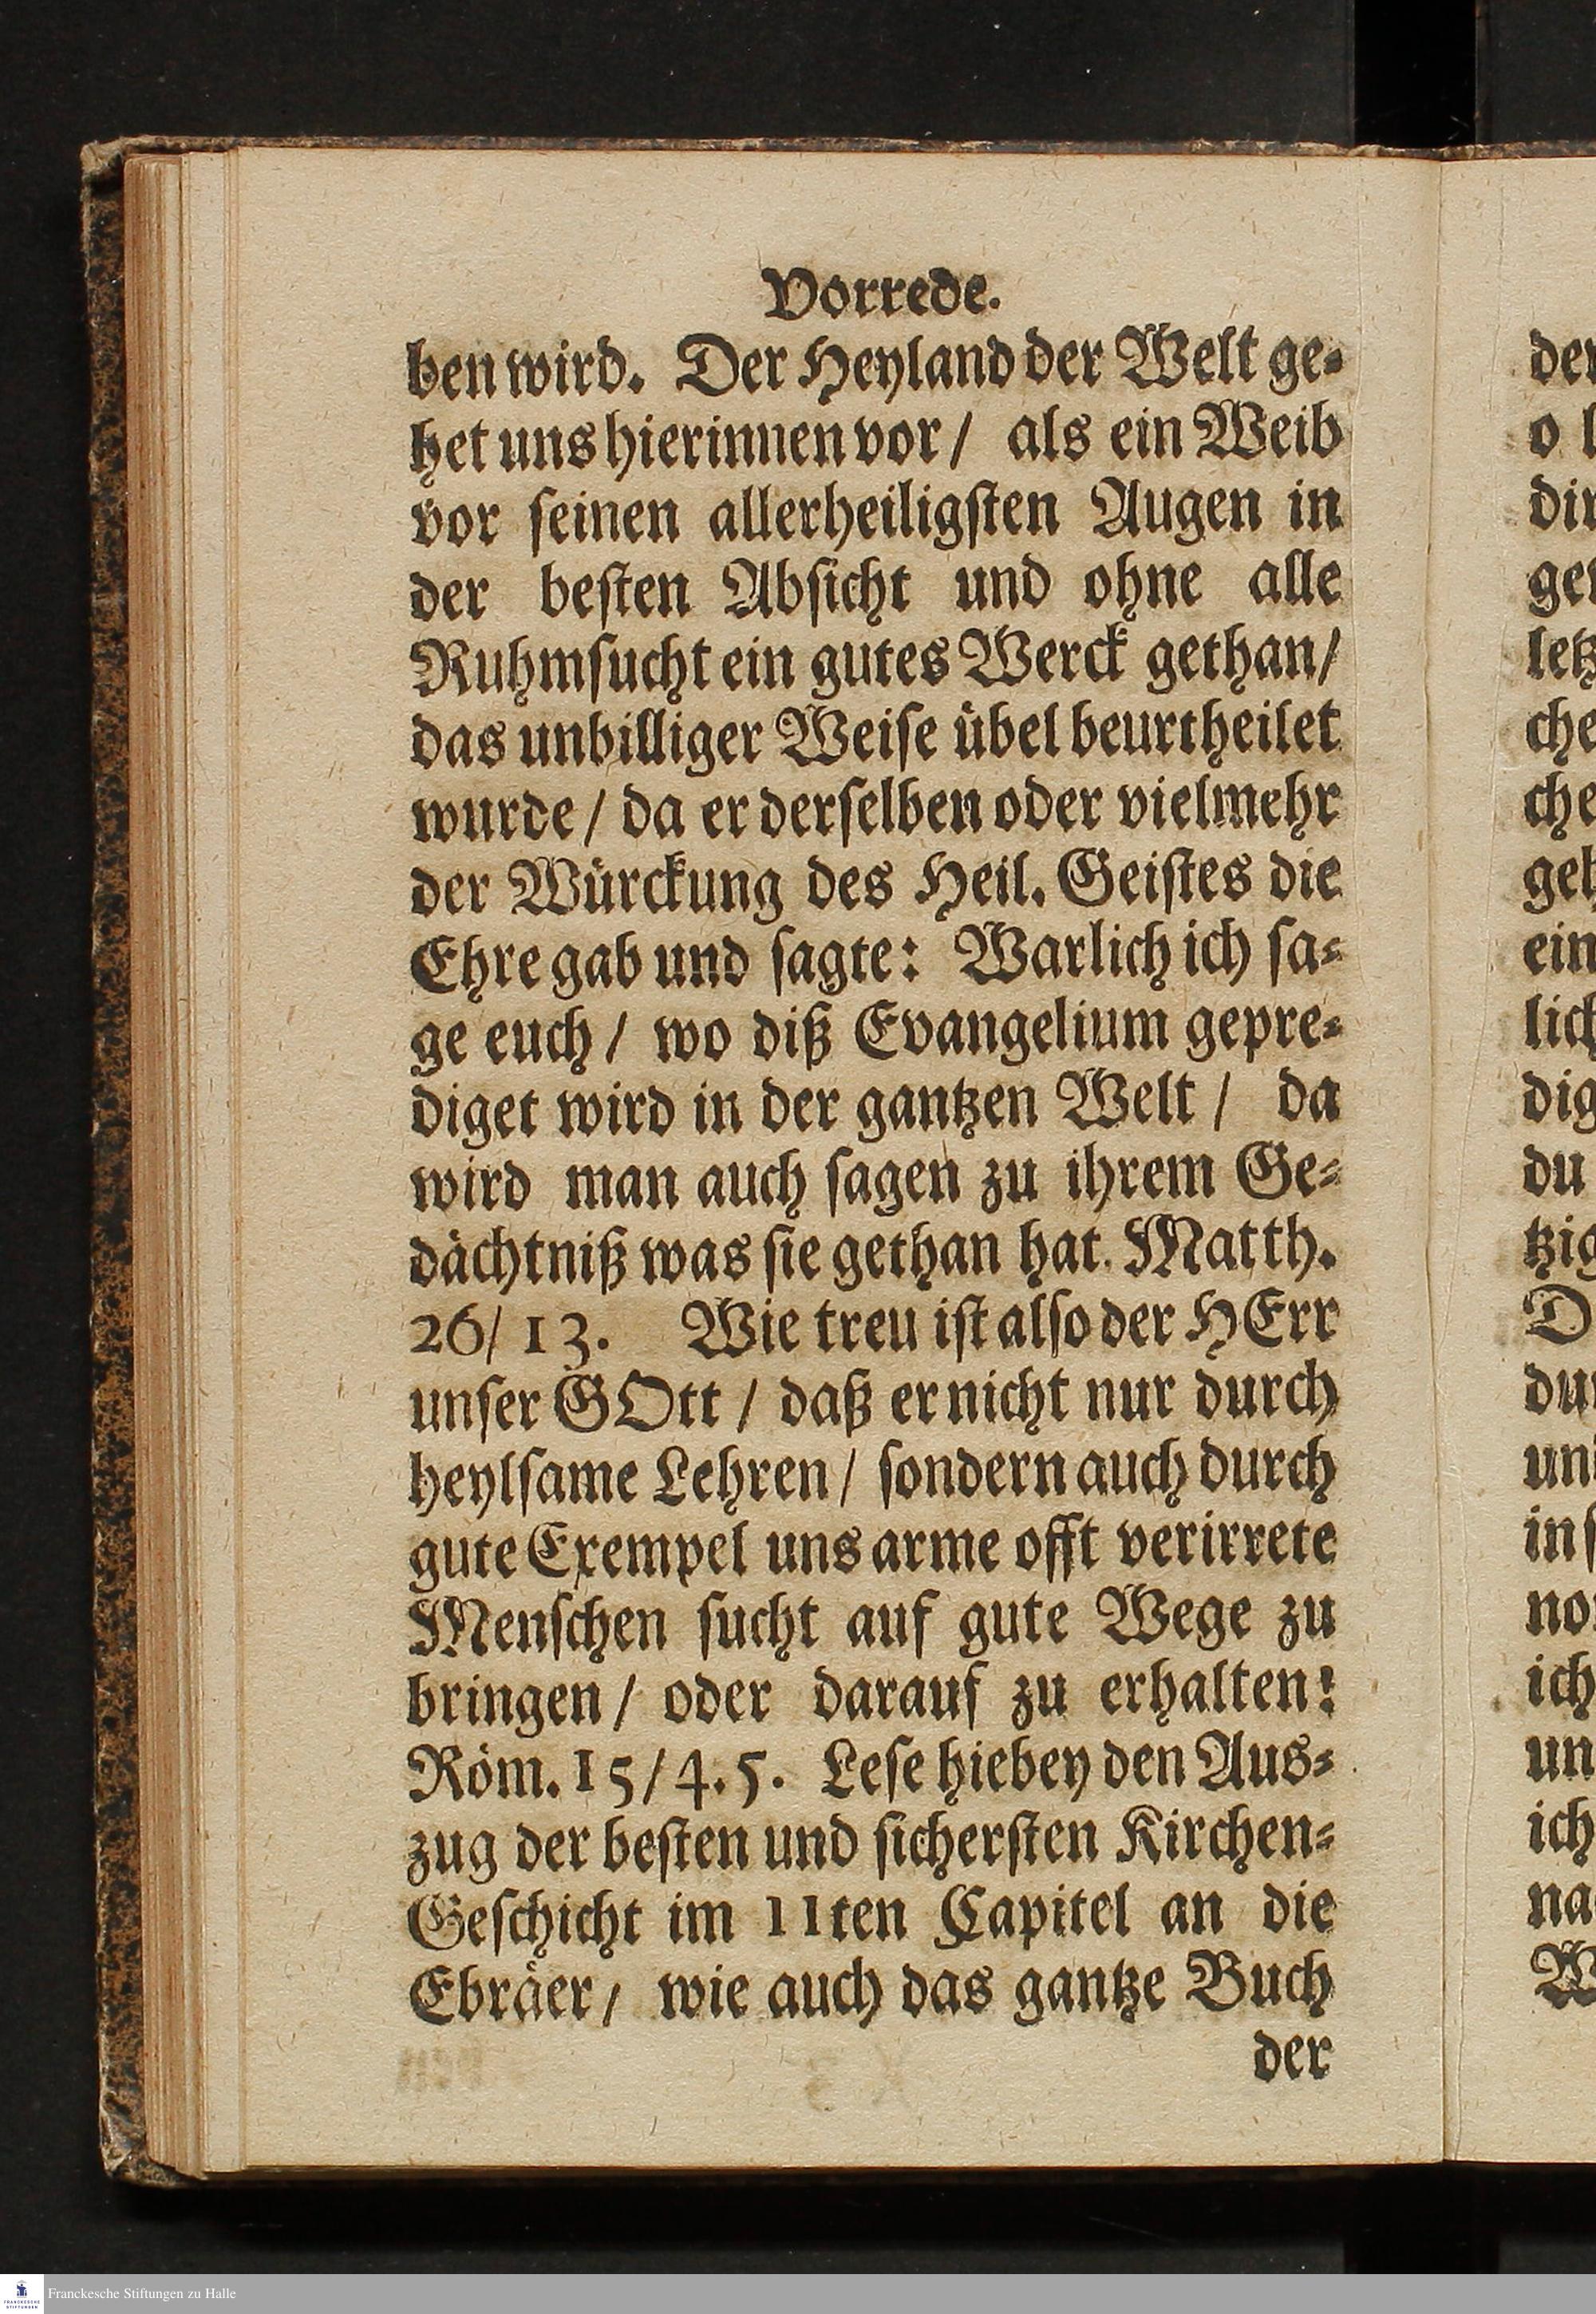 Vorrede.
ben wird. Der Heyland der Welt ge⸗
het uns hierinnen vor / als ein Weib
vor ſeinen allerheiligſten Augen in
der beſten Abſicht und ohne alle
Ruhmſucht ein gutes Werck gethan /
das unbilliger Weiſe uͤbel beurtheilet
wurde / da er derſelben oder vielmehr
der Wuͤrckung des Heil. Geiſtes die
Ehre gab und ſagte: Warlich ich ſa⸗
ge euch / wo diß Evangelium gepre⸗
diget wird in der gantzen Welt / da
wird man auch ſagen zu ihrem Ge⸗
daͤchtniß was ſie gethan hat. Matth.
26/ 13. Wie treu iſt alſo der HErr
unſer GOtt / daß er nicht nur durch
heylſame Lehren / ſondern auch durch
gute Exempel uns arme offt verirrete
Menſchen ſucht auf gute Wege zu
bringen / oder darauf zu erhalten!
Roͤm. 15/ 4. 5. Leſe hiebey den Aus⸗
zug der beſten und ſicherſten Kirchen⸗
Geſchicht im 11ten Capitel an die
Ebraͤer / wie auch das gantze Buch
der
Franckesche Stiftungen zu Halle